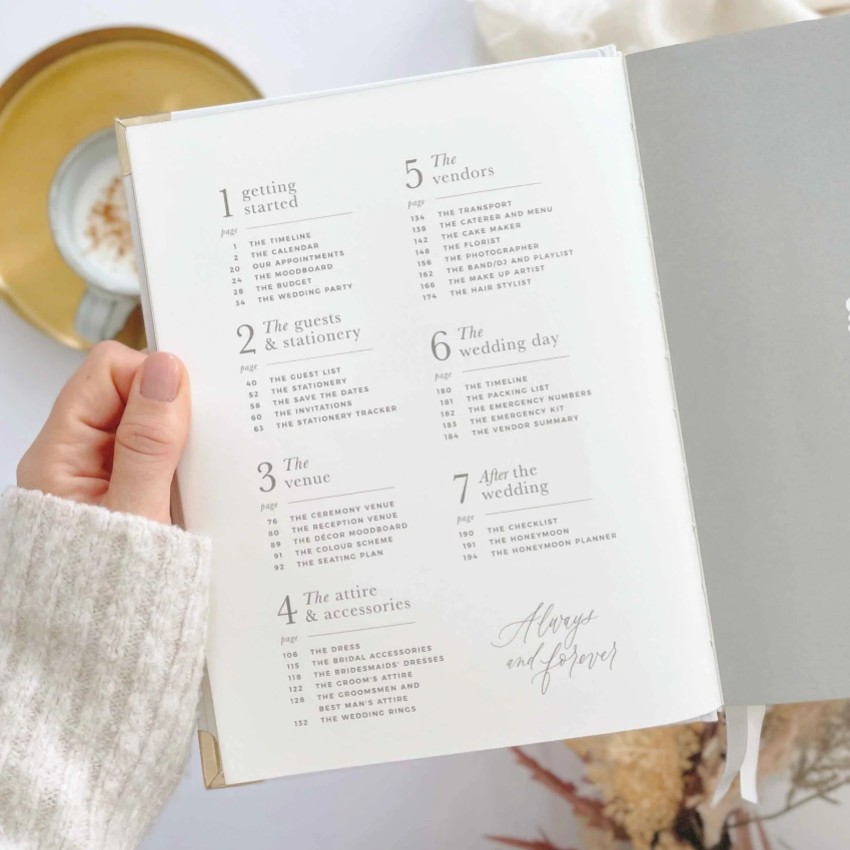 1 getting
started
page
1 THE TIMELINE
2 THE CALENDAR
20 OUR APPOINTMENTS
24 THE MOODBOARD
28 THE BUDGET
34 THE WEDDING PARTY
2 The guests
& stationery
page
40 THE GUEST LIST
52 THE STATIONERY
56 THE SAVE THE DATES
60 THE INVITATIONS
63 THE STATIONERY TRACKER
3 The
venue
page
76 THE CEREMONY VENUE
80 THE RECEPTION VENUE
89 THE DÉCOR MOODBOARD
91 THE COLOUR SCHEME
92 THE SEATING PLAN
4 The attire
& accessories
page
106 THE DRESS
115 THE BRIDAL ACCESSORIES
118 THE BRIDESMAIDS' DRESSES
122 THE GROOM'S ATTIRE
126 THE GROOMSMEN AND
BEST MAN'S ATTIRE
132 THE WEDDING RINGS
5 The
vendors
page
134 THE TRANSPORT
138 THE CATERER AND MENU
142 THE CAKE MAKER
148 THE FLORIST
156 THE PHOTOGRAPHER
162 THE BAND/DJ AND PLAYLIST
166 THE MAKE UP ARTIST
174 THE HAIR STYLIST
6 The
wedding day
page
180 THE TIMELINE
181 THE PACKING LIST
182 THE EMERGENCY NUMBERS
183 THE EMERGENCY KIT
184 THE VENDOR SUMMARY
7 After the
wedding
page
190 THE CHECKLIST
191 THE HONEYMOON
194 THE HONEYMOON PLANNER
Always
and forever